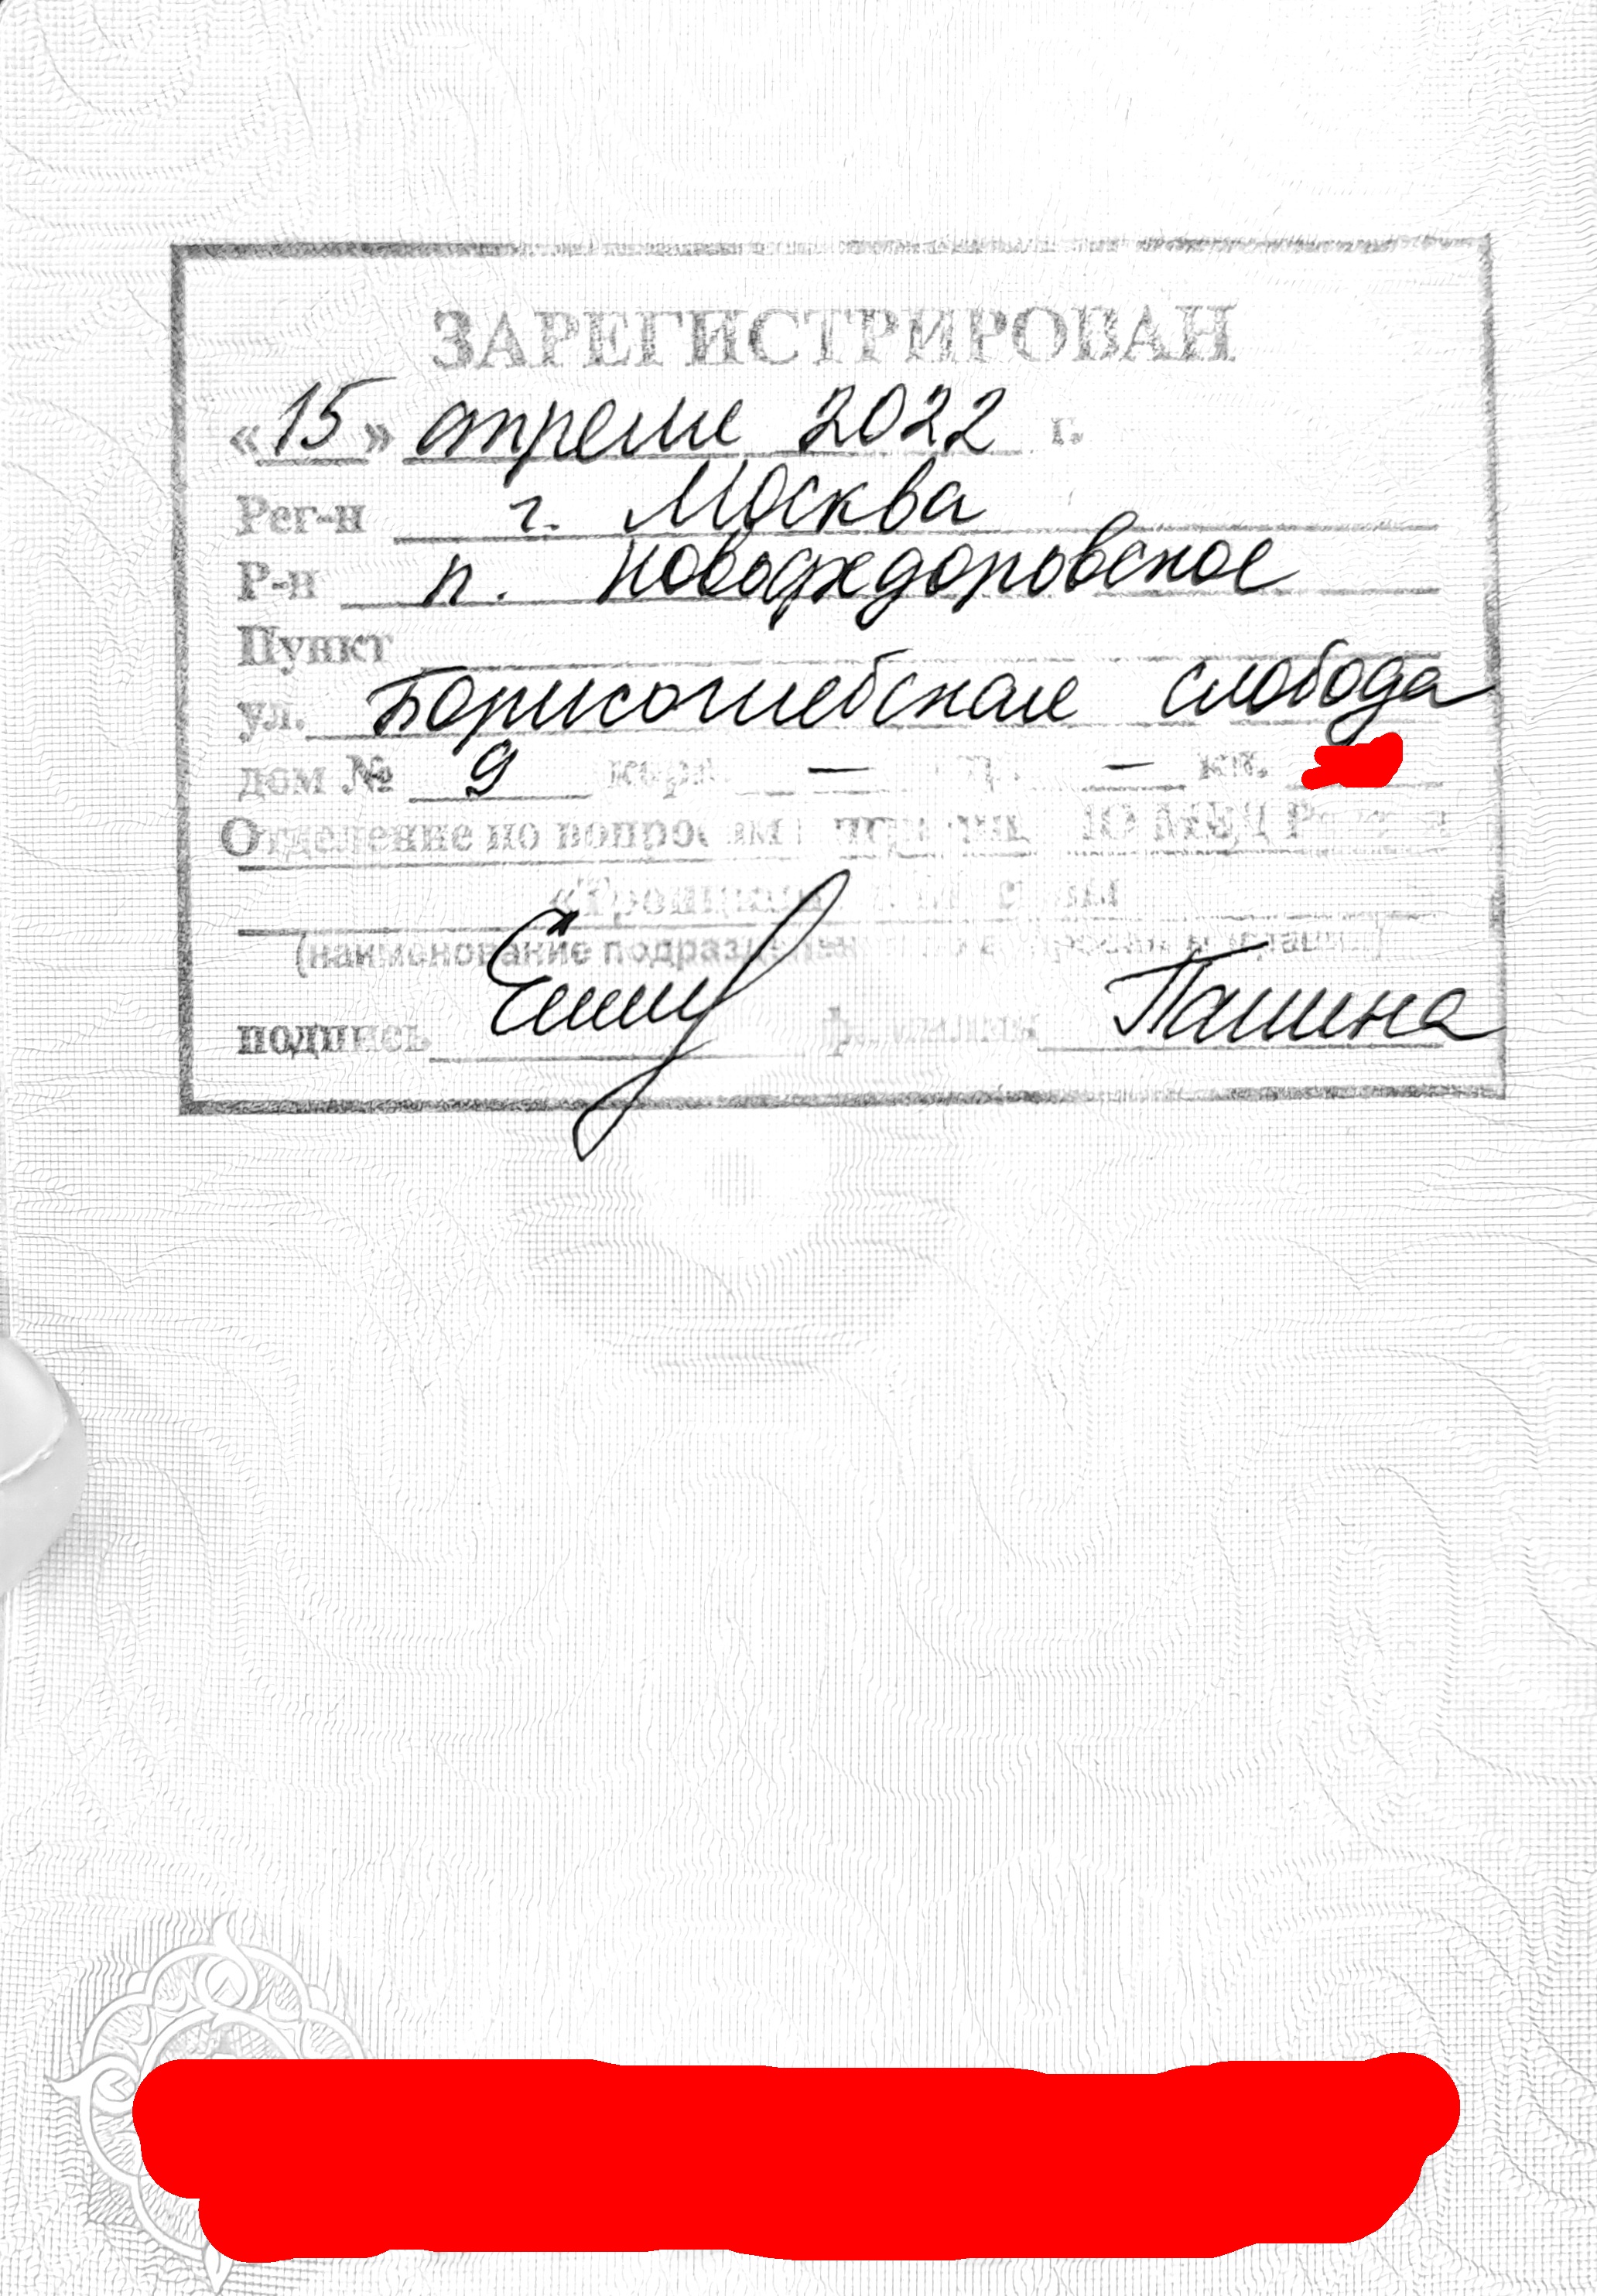 ЗАРЕГИСТРИРОВАН
«15» апреля 2022 г.
Рег-н г. Москва
Р-н п. Новофёдоровское
Пункт
ул. Борисоглебская слобода
дом № 9 корп. — стр. — кв.
Отделение по вопросам миграции МО МВД России
«Троицкий» г. Москвы
(наименование подразделения по вопросам миграции)
подпись фамилия Пашина